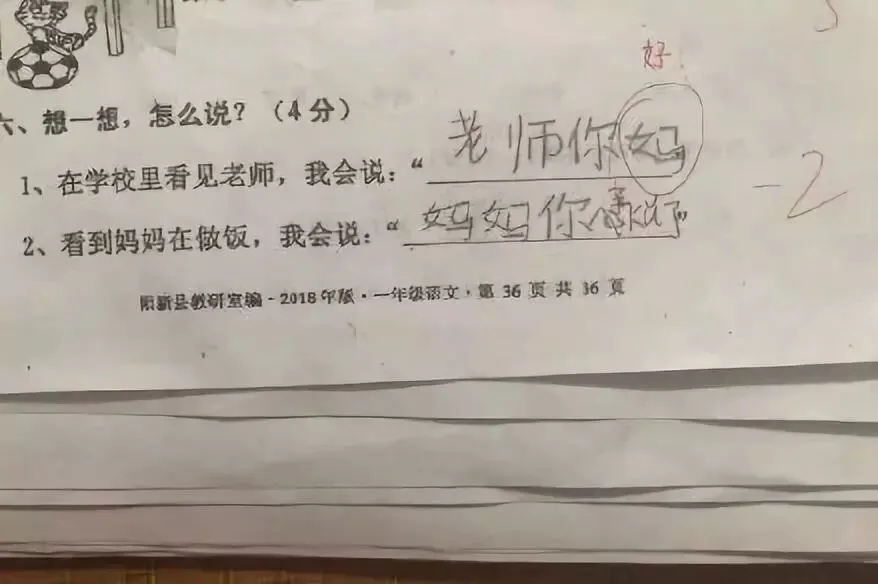 好
六、想一想，怎么说？（4分）
1、在学校里看见老师，我会说：“老师你妈
2、看到妈妈在做饭，我会说：“妈妈你辛苦了”
-2
阳新县教研室编-2018年版·一年级语文·第 36 页 共 36 页